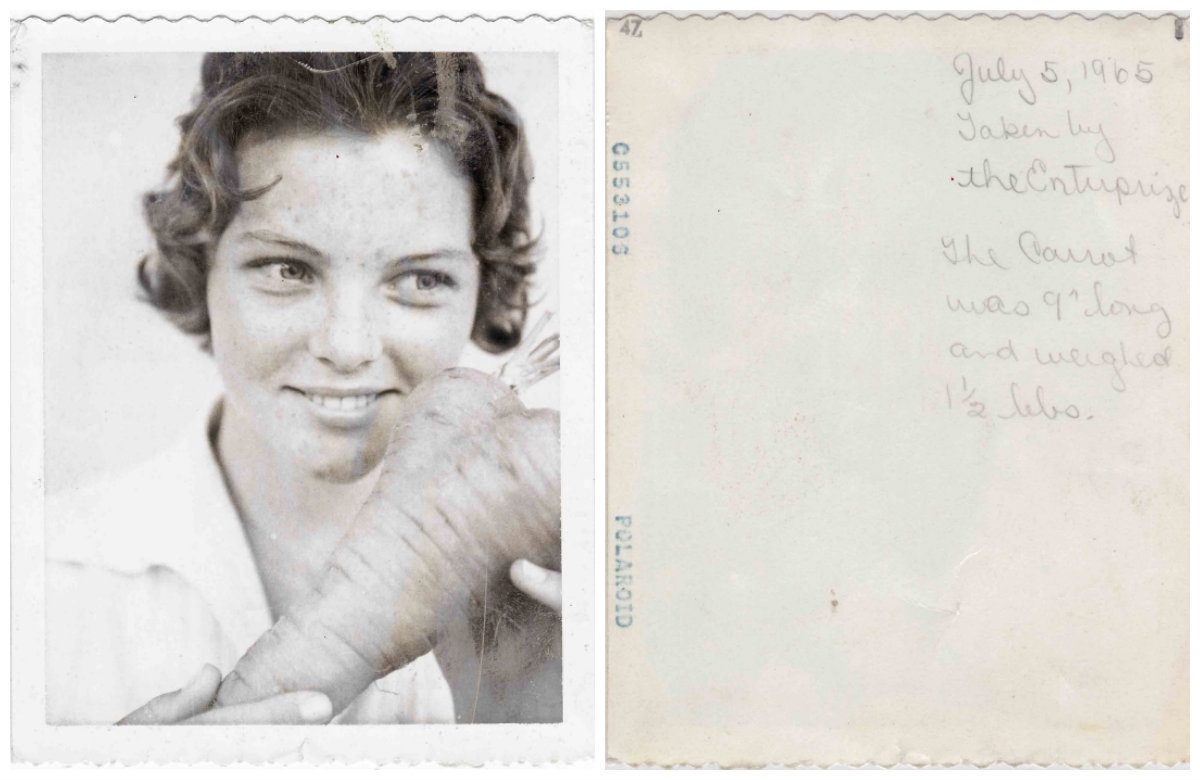 4Z
July 5, 1965
Taken by
the Enterprize
The Carrot
was 9" long
and weighed
1½ lbs.
POLAROID